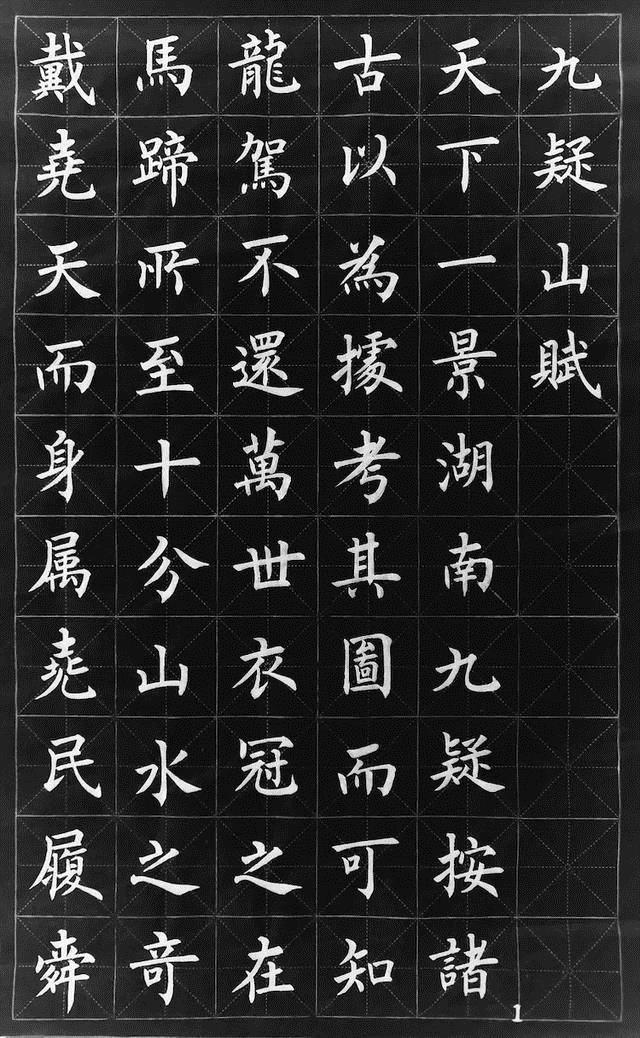 九疑山賦
天下一景湖南九疑按諸
古以為據考其圖而可知
龍駕不還萬世衣冠之在
馬蹄所至十分山水之奇
戴堯天而身属堯民履舜
1